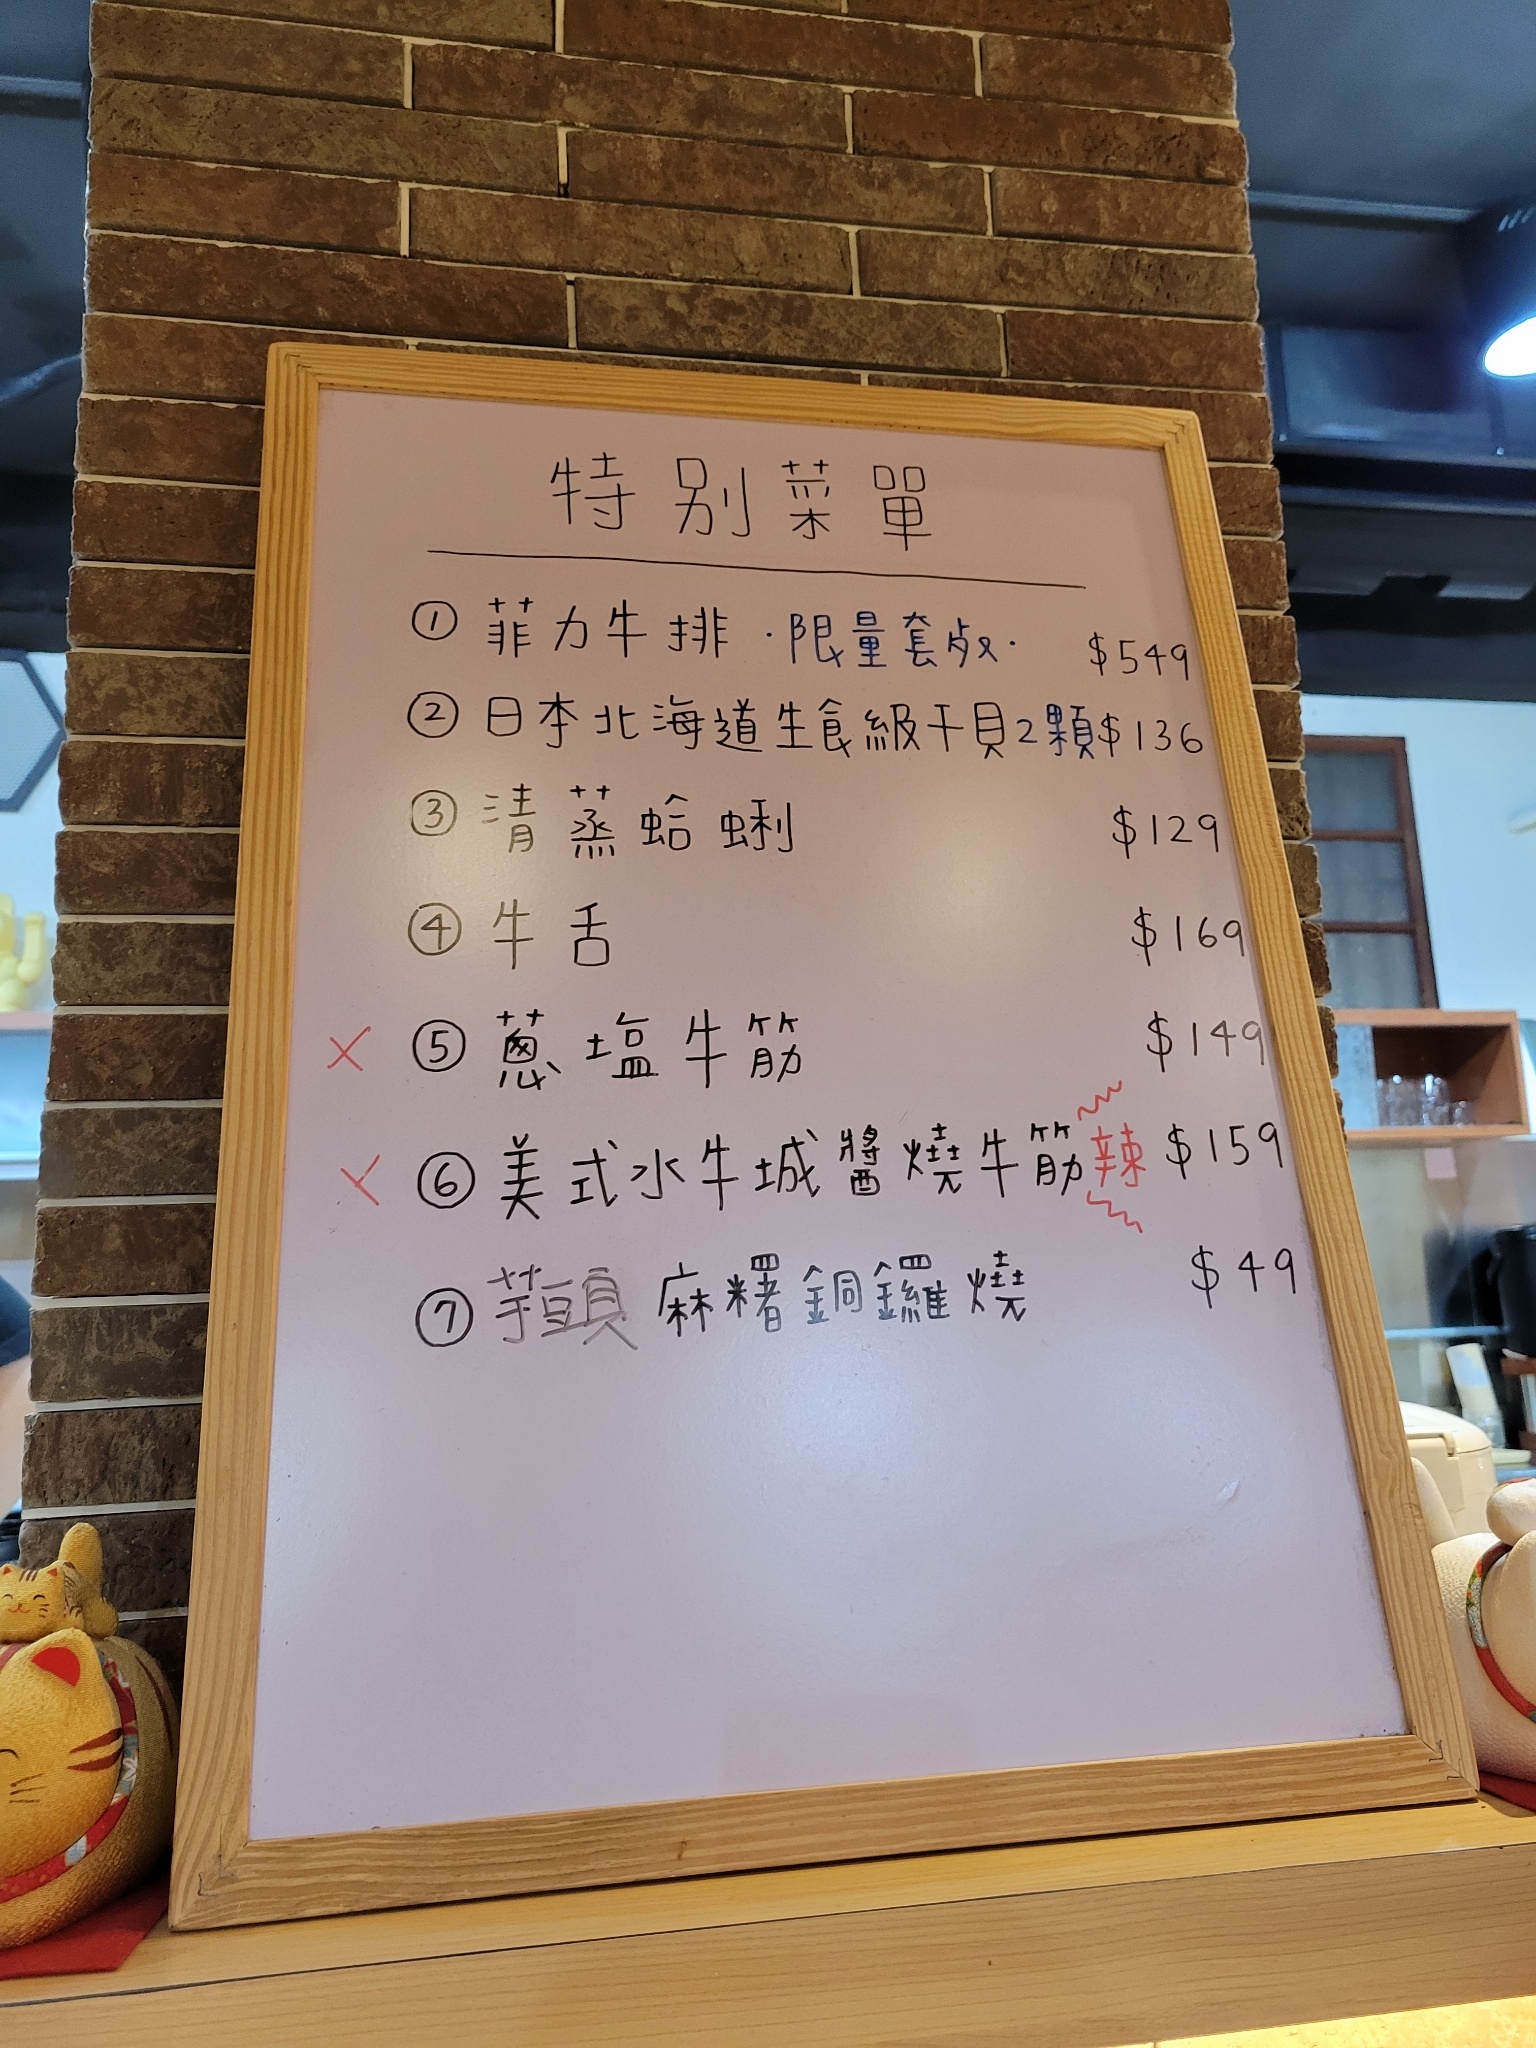 特别菜單
① 菲力牛排 ·限量套歺· $549
② 日本北海道生食級干貝2顆 $136
③ 清蒸蛤蜊 $129
④ 牛舌 $169
X ⑤ 蔥塩牛筋 $149
X ⑥ 美式水牛城醬燒牛筋辣 $159
⑦ 芋頭麻糬銅鑼燒 $49